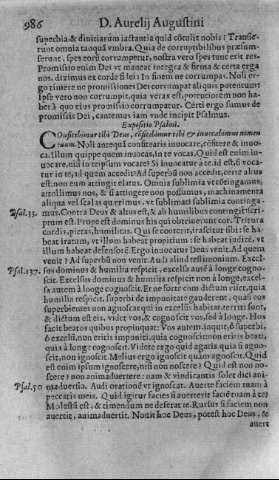 986 D. Aurelij Augustini
superbia & diuitiarum iactantia quid cōtulit nobis? Transie-
runt omnia tanquā vmbra. Quia de corruptibilibus præsum-
serunt, spes eorū corrumpetur, nostra vero spes tunc erit res.
Promissio enim Dei vt maneat integra & firma & certa erga
nos, diximus ex corde fideli: In finem ne corrumpas. Nosti er-
go timere ne promissiones Dei corrumpat aliquis potentum?
Ipse vero non corrumpit, quia verax est, potētiorem non ha-
bet à quo eius promissio corrumpatur. Certi ergo sumus de
promissis Dei, cantemus iam vnde incipit Psalmus.
Expositio Psalmi.
Confitebimur tibi Deus, cōfitebimur tibi & inuocabimus nomen
tuum. Noli antequā confitearis inuocare, cōfitere & inuo-
ca. Illum quippe quem inuocas, in te vocas. Quid est enim in-
uocare, nisi in teipsum vocare? Si inuocatur à te, id est, si voca-
tur in te, ad quem accedit? Ad superbū non accedit, certe altus
est, non eum attingit elatus. Omnia sublimia vt cōtingamus,
attollimus nos, & si attingere non possumus, machinamenta
aliqua vel scalas quærimus, vt sublimati sublimia continga-
Psal.33. mus. Contra Deus & altus est, & ab humilibus contingitur:
prope est
cordis, pietas, humilitas.
beat iratum, vt illum habeat propitium: se habeat iudicē, vt
illum habeat defensorē. Ergo inuocatur Deus vt veniat. Ad quem
venit? Ad superbū non venit. Audi aliud testimonium. Excel-
Psal.137. sus dominus & humilia respicit, excelsa autē à longe cognos-
cit. Excelsus dominus & humilia respicit non à longe, excel-
sa autem à longe cognoscit. Et ne forte cum dictum esset, quia
humilia respicit, superbi de impunitate gauderent, quasi eos
superbientes non agnoscat qui in excelsis habitat: territi sunt,
& dictum est eis, videt vos, & cognoscit vos, sed à longe. Hos
facit beatos quibus propinquat: Vos autem, inquit, ô superbi,
ô excelsi, non eritis impuniti, quia cognoscit: non eritis beati,
quia à longe cognoscit. Videte ergo quid agatis, quia si agnos-
cit, non ignoscit. Melius ergo ignoscit quàm agnoscit. Quid
est enim ipsum ignoscere, nisi non noscere? Quid est non no-
scere? non animaduertere: nam & vindicantis solet dici ani-
Psal.50 maduersio. Audi orationē vt ignoscat. Auerte faciem tuam à
peccatis meis. Quid igitur facies si auerterit faciē tuam à te?
Molesta est, & timendum ne deserat te. Rursus si faciem non
auertit, animaduertit. Nouit hoc Deus, potest hoc Deus, &
auert